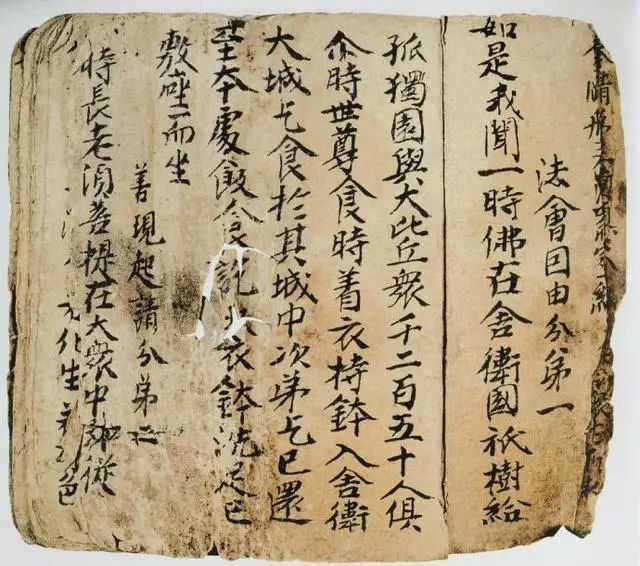 法會囙由分第一
如是我聞一時佛在舍衛國祇樹給
孤獨園與大比丘衆千二百五十人俱
尒時世尊食時着衣持鉢入舍衛
大城乞食於其城中次第乞已還
至本處飯食訖衣鉢洗足已
敷座而坐
善現起請分第二
時長老須菩提在大衆中即從
化生若色